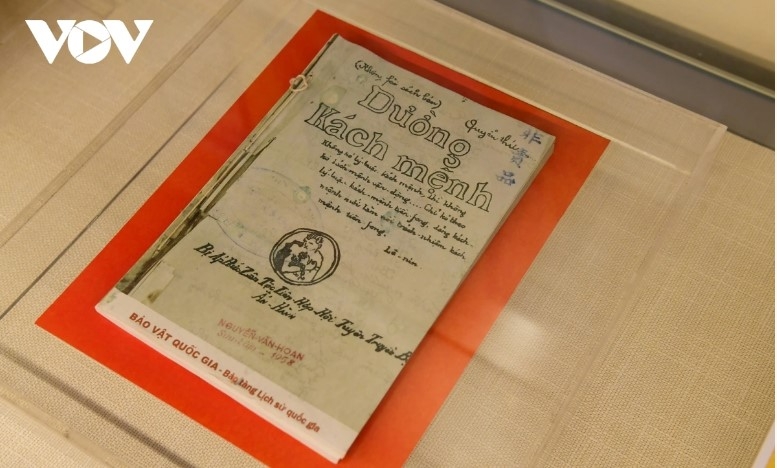 VOV
(Không fải sách bán)
Quyển thứ
Đường
Kách mệnh
非賣品
Không có lý luận kách mệnh, thì không
có kách mệnh vận động.... Chỉ có theo
lý luận kách mệnh tiền fong, đảng kách
mệnh mới làm nổi trách nhiệm kách
mệnh tiền fong.
Lê-nin
Bị Áp Bức Dân Tộc Liên Hợp Hội Tuyên Truyền Bộ
Ấn-Hành
NGUYỄN-VĂN-HOAN
1958
BẢO VẬT QUỐC GIA - Bảo tàng Lịch sử quốc gia